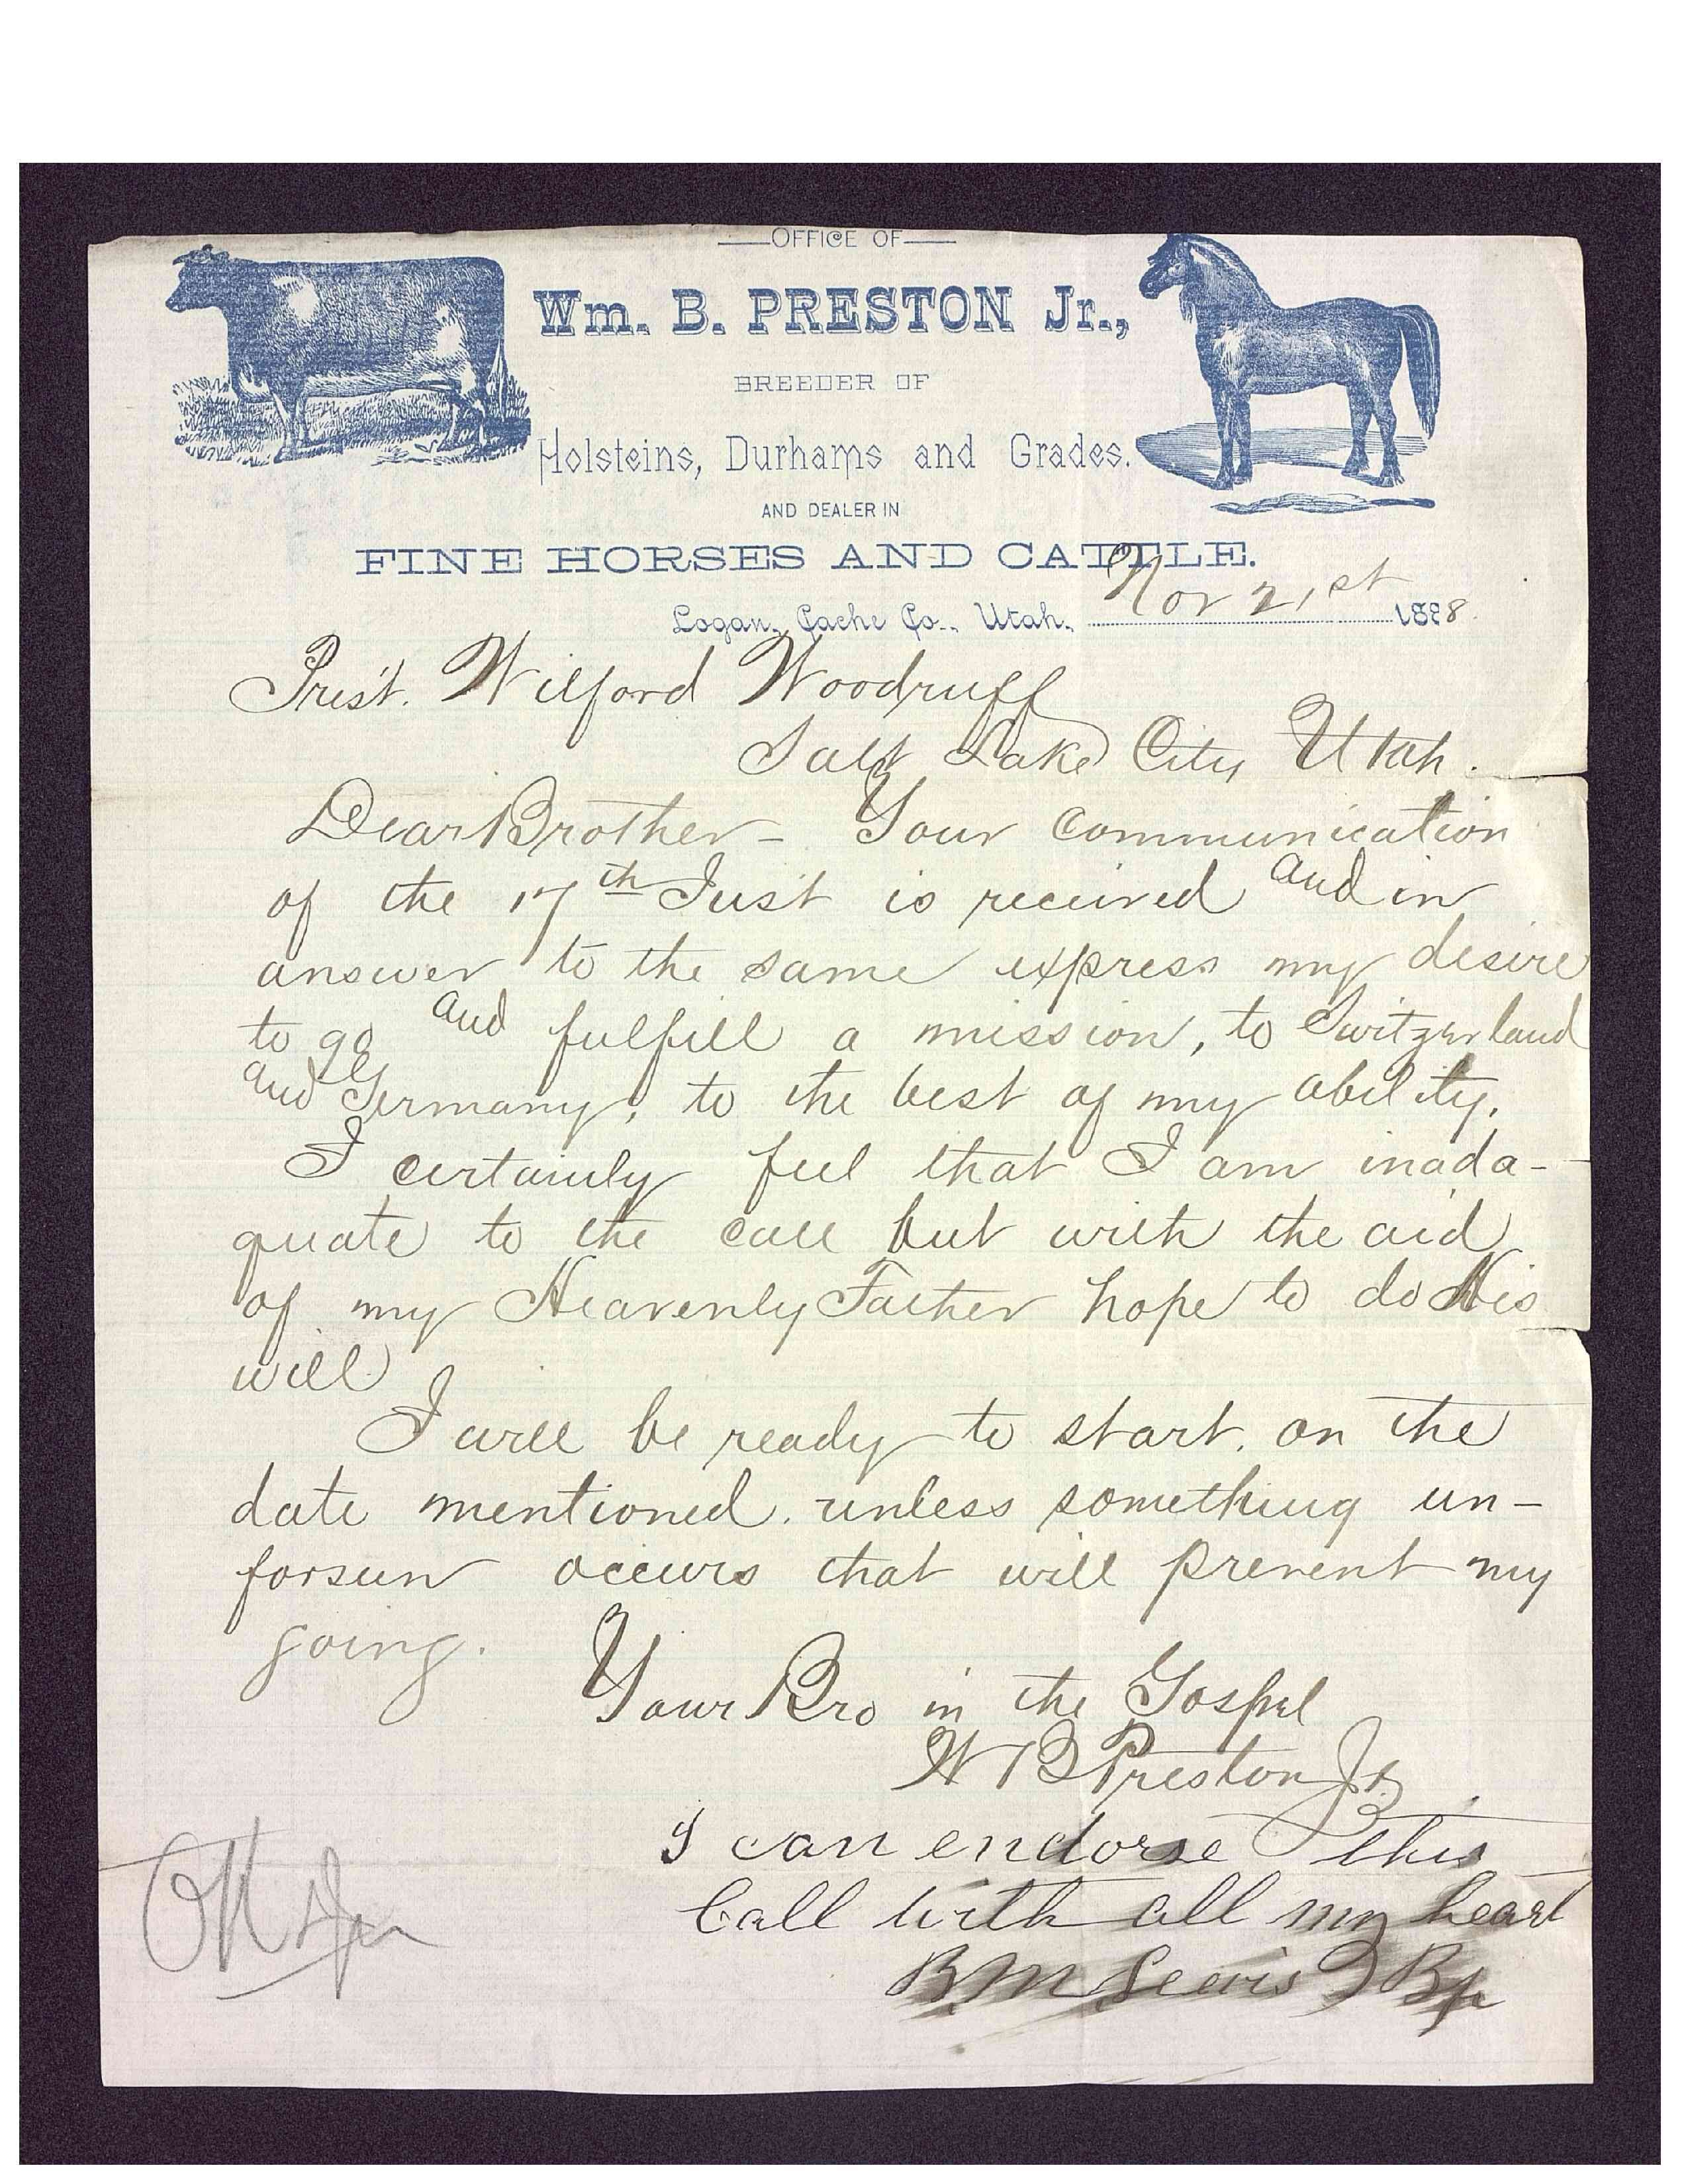 OFFICE OF
Wm. B. PRESTON Jr.,
BREEDER OF
Holsteins, Durhams and Grades.
AND DEALER IN
FINE HORSES AND CATTLE.
Logan, Cache Co., Utah, Nov 21st 1888
Prest. Wilford Woodruff
Salt Lake City Utah.
Dear Brother - Your communication
of the 17th Inst is received and in
answer to the same express my desire
to go and fulfill a mission, to Switzerland
and Germany, to the best of my ability.
I certainly feel that I am inada-
quate to the call but with the aid
of my Heavenly Father hope to do His
will
I will be ready to start. on the
date mentioned. unless something un-
forseen occurs that will prevent my
going.
Your Bro in the Gospel
W B Preston Jr.
I can endorse this
Call with all my heart
B M Lewis Bp
OK